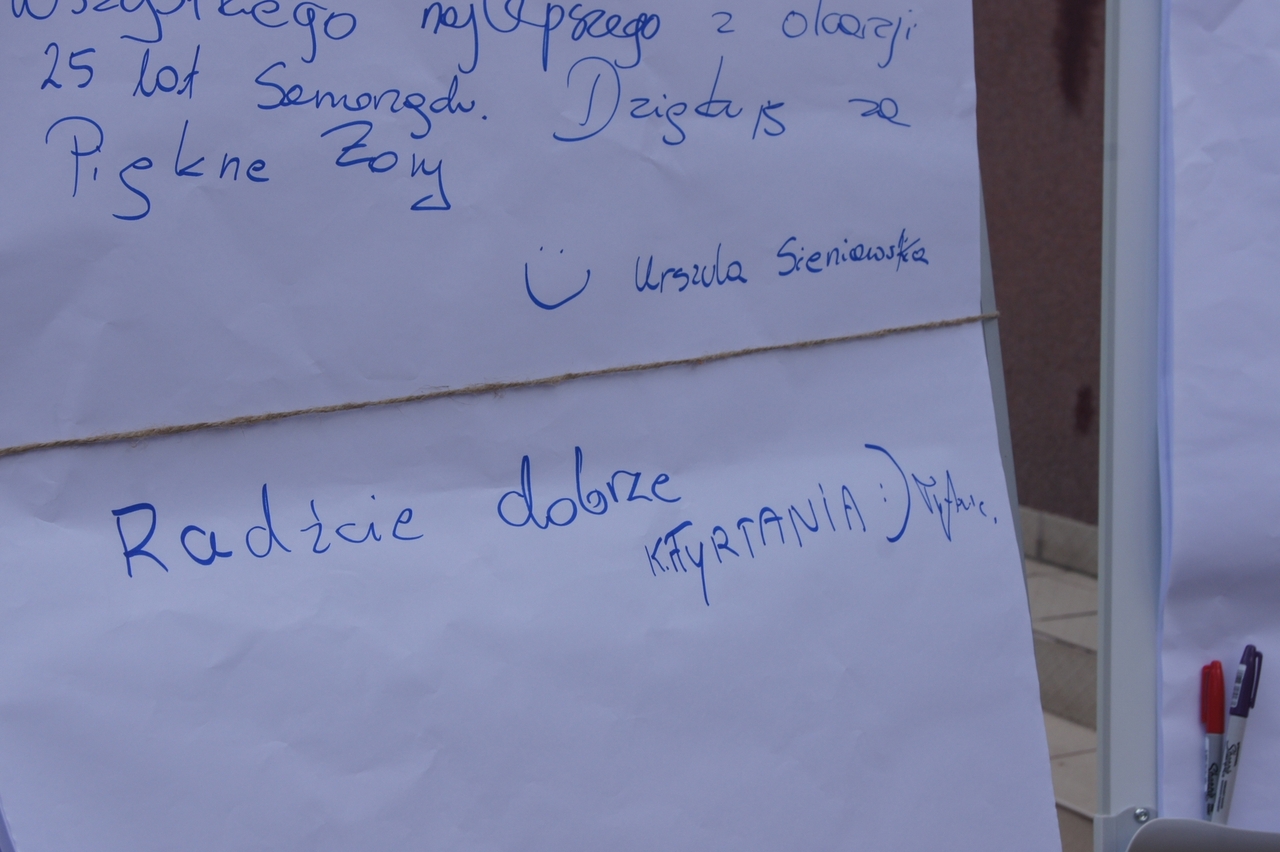 Wszystkiego najlepszego z okazji
25 lat Samorządu. Dziękuję za
Piękne Żory
Urszula Sieniawska
Radźcie dobrze
K. :)
Sharpie